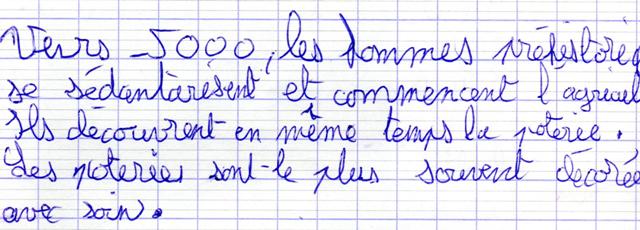 Veurs -5000, les hommes préhistoriq
se sédantarisent et commencent l'agricul
Ils découvrent en même temps la poterie.
Les poteries sont le plus souvent décorée
avec soin.